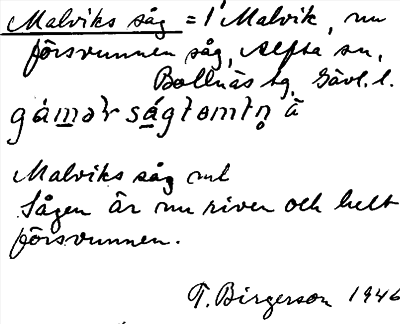 Malviks såg = i Malvik, nu
försvunnen såg, Alfta sn,
Bollnäs tg, Gävl. l.
gámər ságtomtn̥ ä
Malviks såg ml
Sågen är nu riven och helt
försvunnen.
T. Birgerson 1946